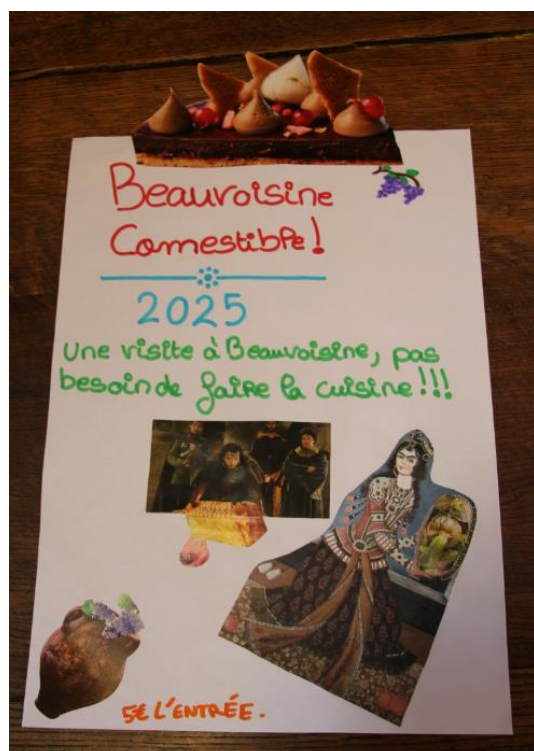 Beauvoisine
Comestible!
2025
Une visite à Beauvoisine, pas
besoin de faire la cuisine!!!
5€ L'ENTRÉE.